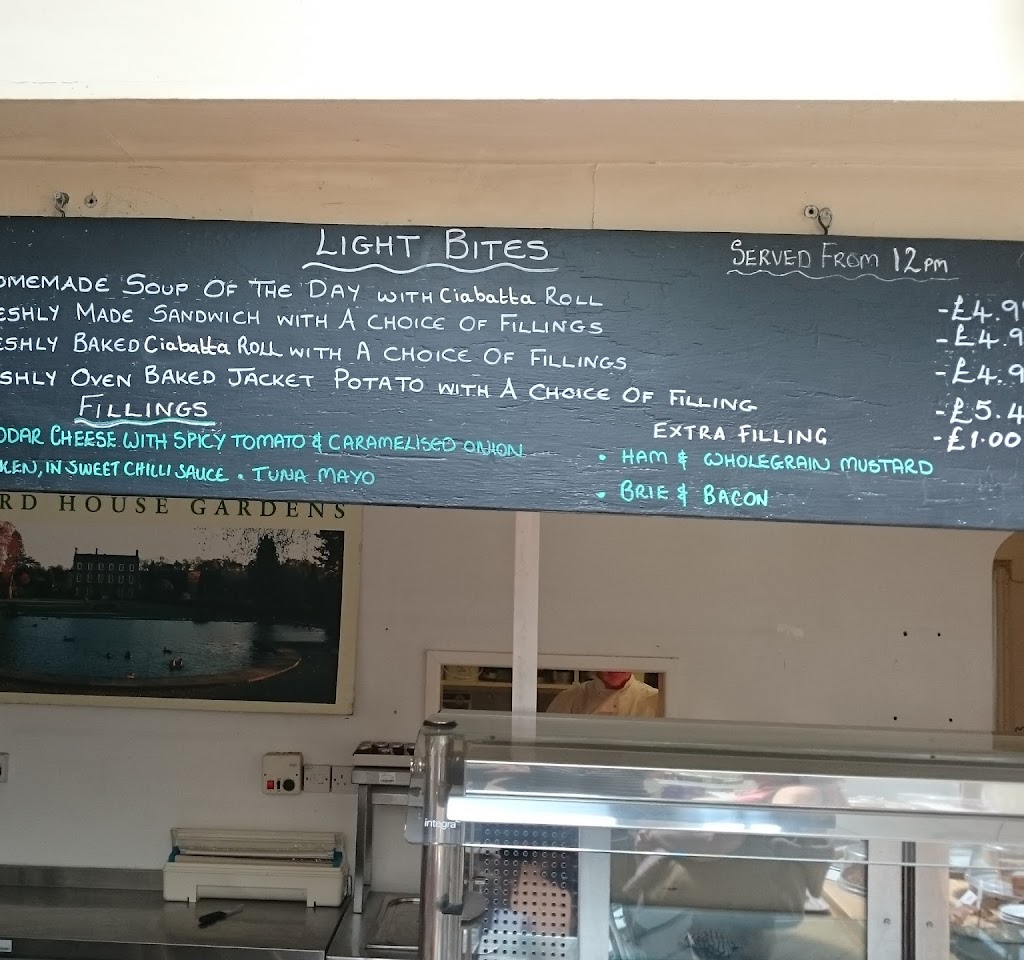 LIGHT BITES
SERVED FROM 12PM
OMEMADE SOUP OF THE DAY WITH Ciabatta ROLL -£4.9
ESHLY MADE SANDWICH WITH A CHOICE OF FILLINGS -£4.9
ESHLY BAKED Ciabatta ROLL WITH A CHOICE OF FILLINGS -£4.9
SHLY OVEN BAKED JACKET POTATO WITH A CHOICE OF FILLING -£5.4
FILLINGS
EXTRA FILLING -£1.00
DDAR CHEESE WITH SPICY TOMATO & CARAMELISED ONION
• HAM & WHOLEGRAIN MUSTARD
KEN, IN SWEET CHILLI SAUCE • TUNA MAYO
• BRIE & BACON
RD HOUSE GARDENS
integra